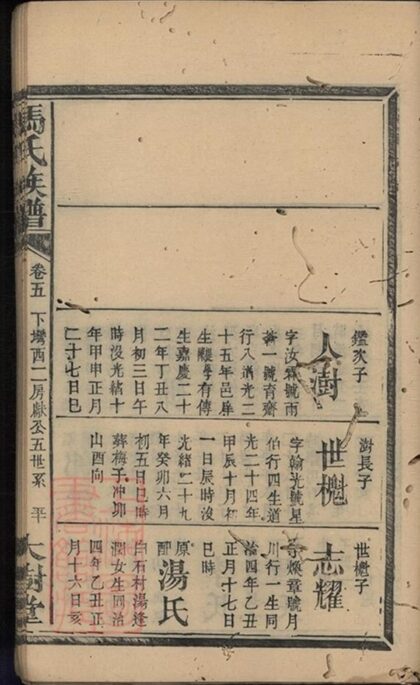 馬氏族譜
卷五
下塆西二房獻公五世系
平
大樹堂
鑑次子
人澍
字汝霖號雨
一號育齋
行八道光二
十五年邑庠
生有傳
生嘉慶二十
二年丁丑八
月初三日午
時沒光緒十
年甲申正月
二十七日巳
澍長子
世櫆
字翰光號星
伯行四生道
光二十四年
甲辰十月初
一日辰時沒
光緒二十九
年癸卯六月
初五日巳時
蘇梅子冲卯
山酉向
世櫆子
志耀
煥章號月
川行一生同
治四年乙丑
正月十七日
巳時
原配湯氏
白石村湯逢
潤女生同治
四年乙丑正
月十六日亥